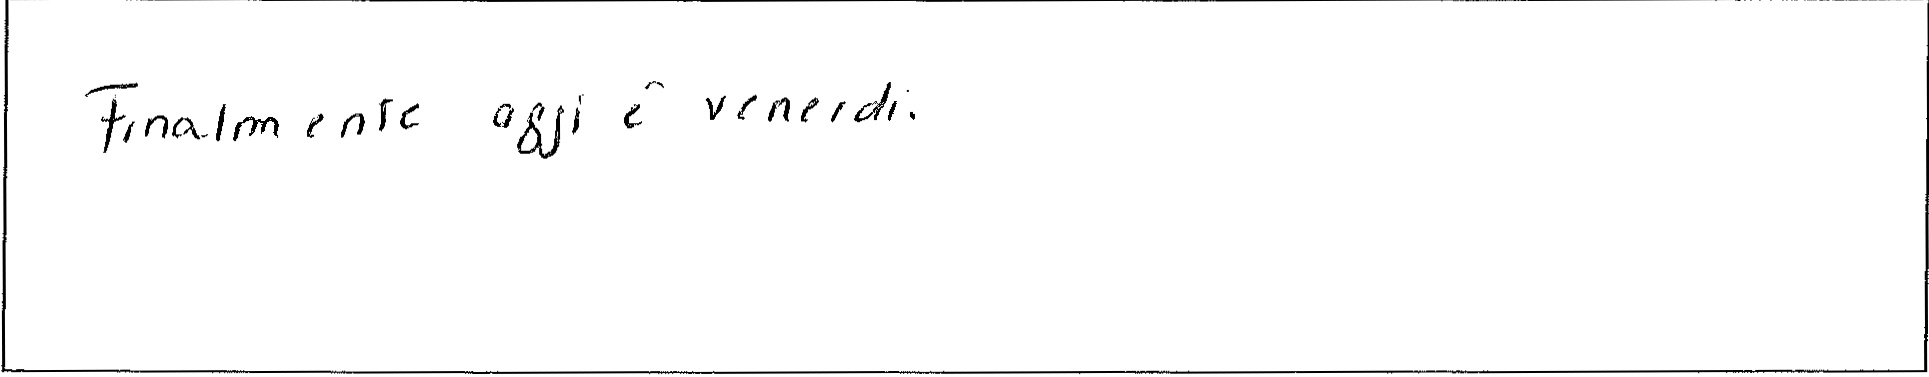 Finalmente oggi è venerdi.